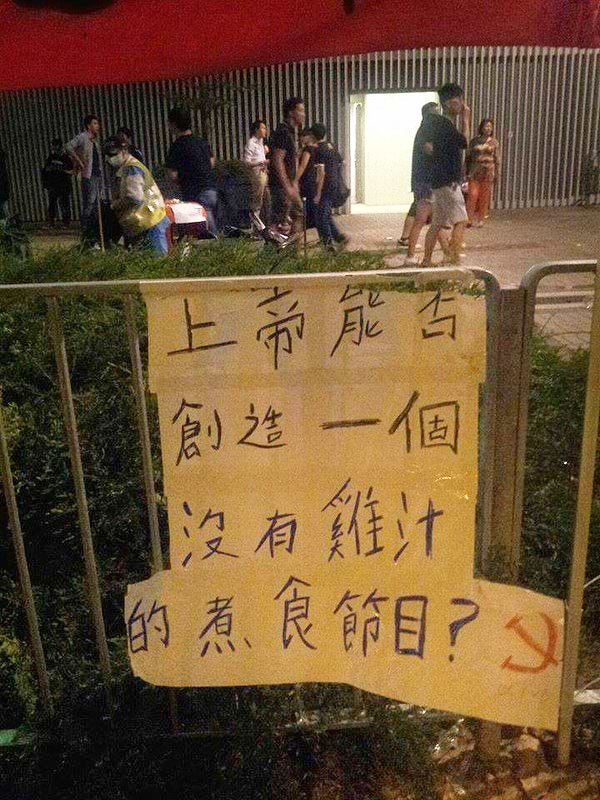 上帝能否
創造一個
沒有雞汁
的煮食節目？